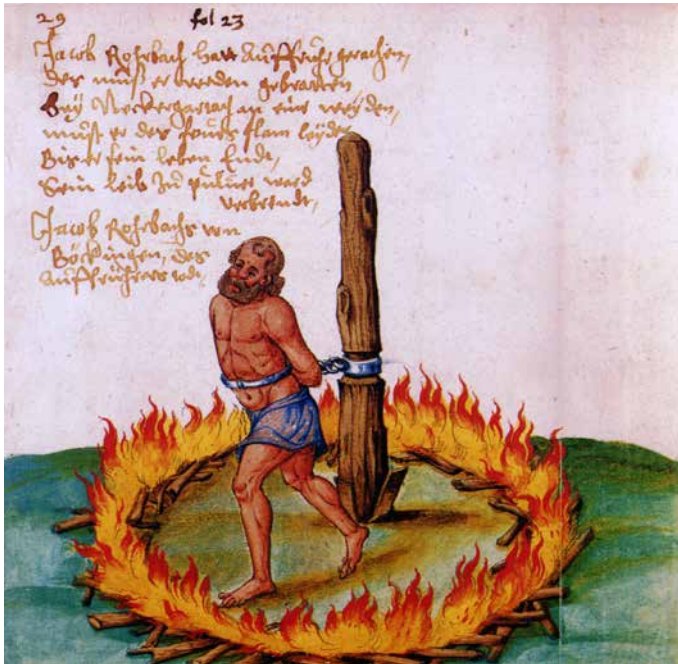 29 fol 23
Jacob Rohrbach hat Auffruhr gerachen,
Des must er werden gebratten,
Bÿ Neckergartach an eine weyden,
must er des feurs flam leyden
Bis er sein leben Endt,
Sein leib zu puluer ward
verbrendt,
Jacob Rohrbachs von
Böckingen, des
Auffrührers tod,